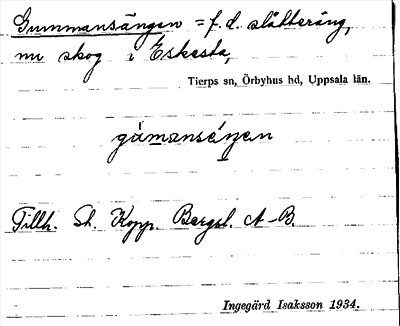 Gummansängen = f. d. slåtteräng,
nu skog i Eskesta,
Tierps sn, Örbyhus hd, Uppsala län.
gùmanséŋen
Tillh. St. Kopp. Bergsl. A-B.
Ingegärd Isaksson 1934.